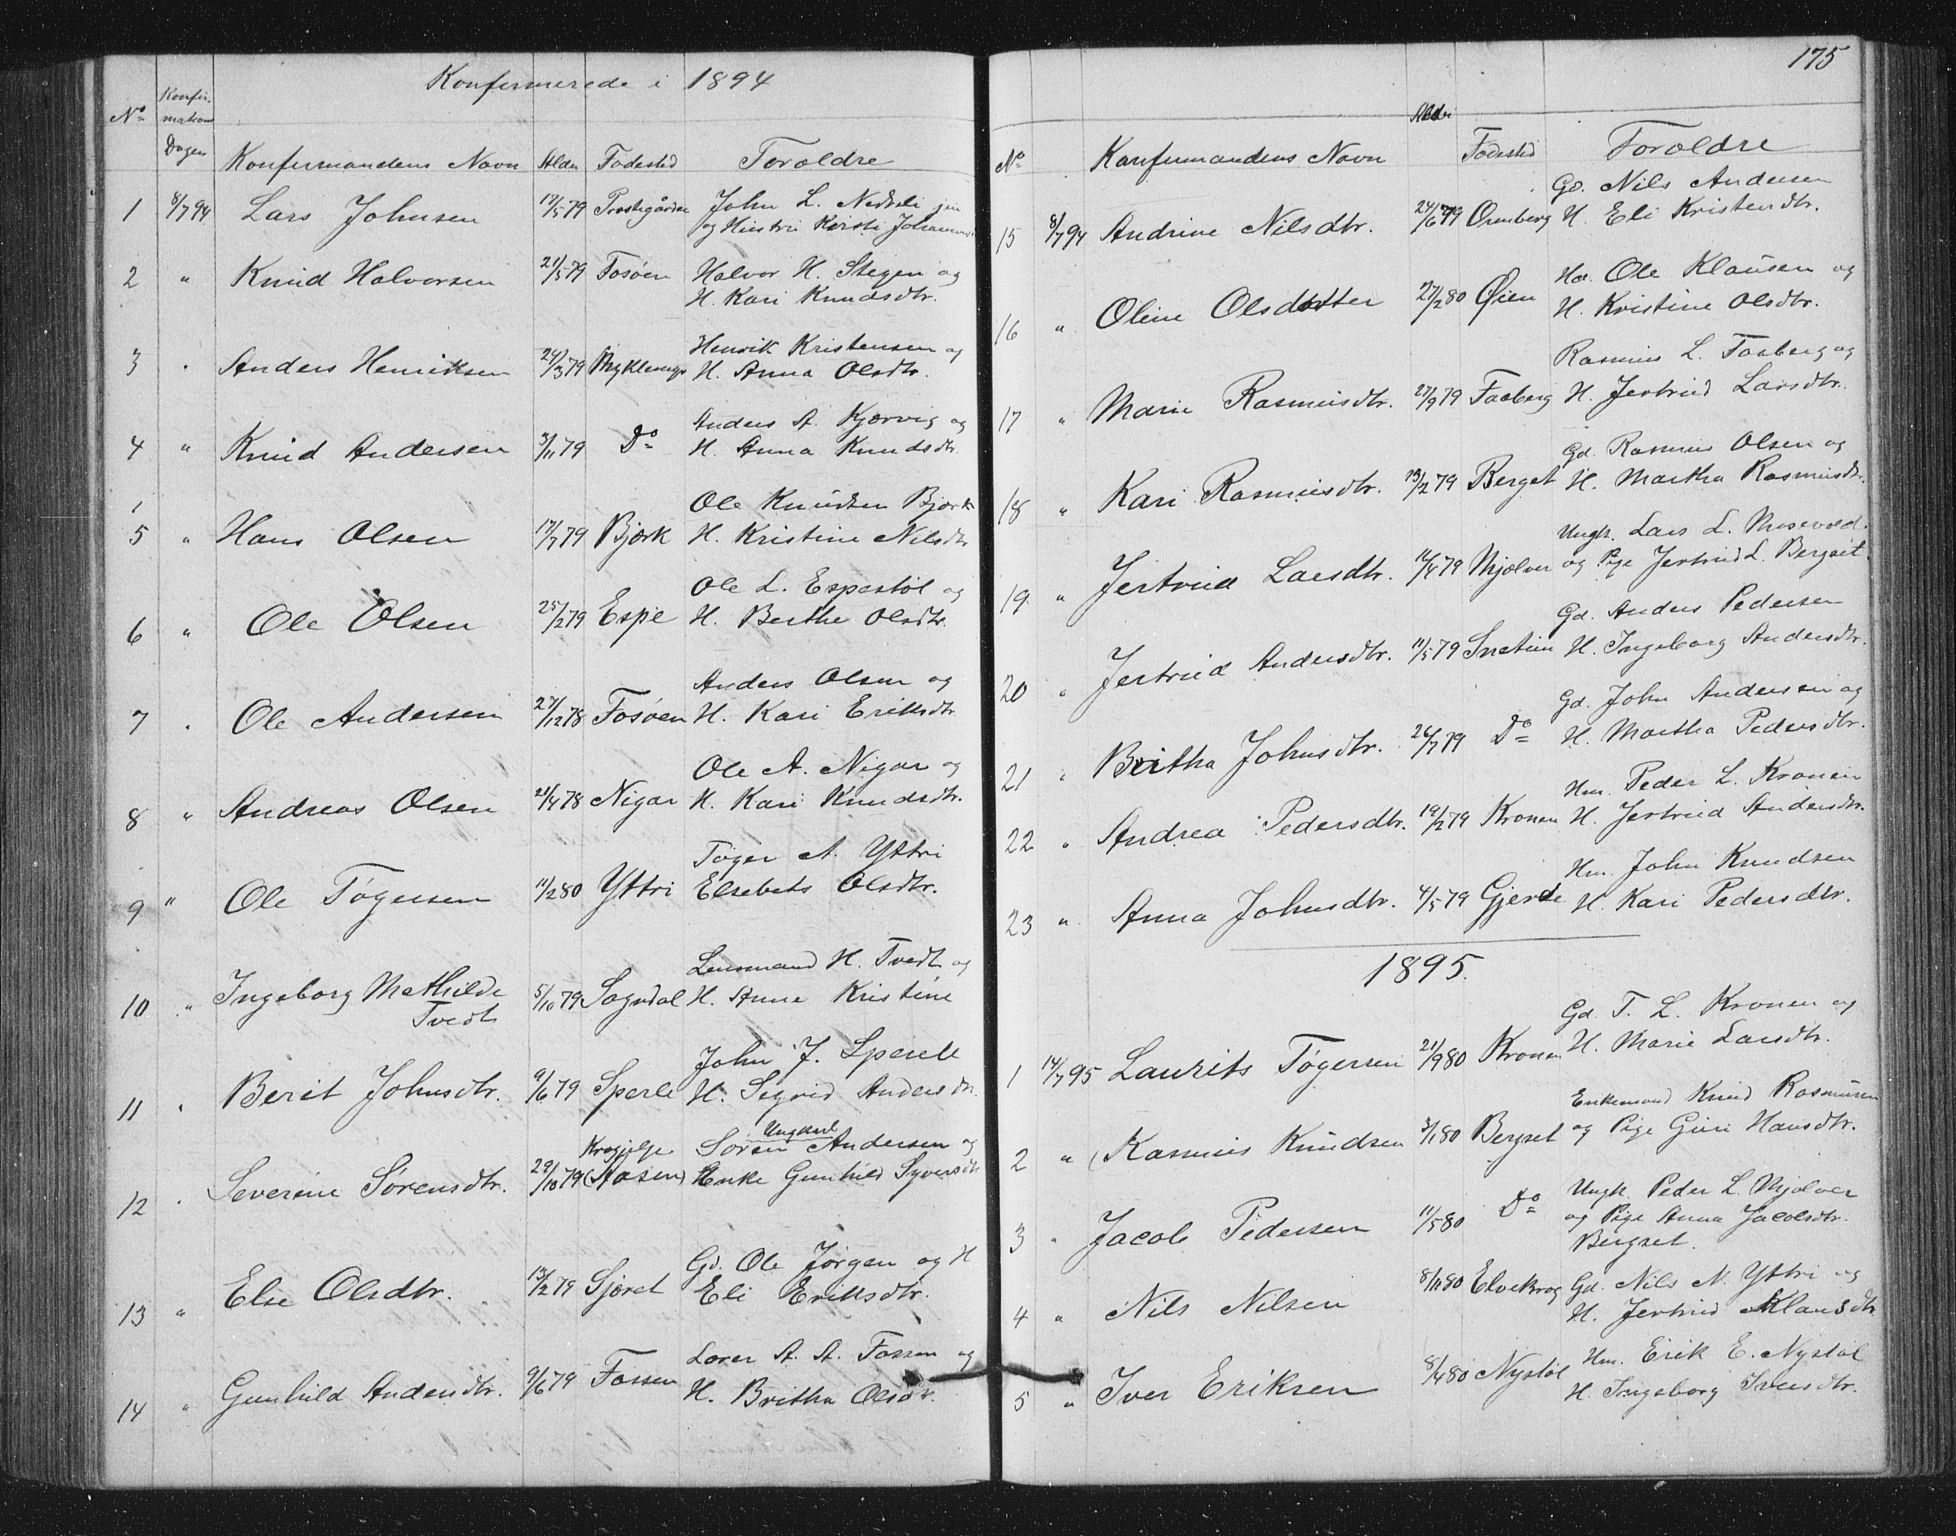 Konfirmerede i 1894
No Konfirmations Dagen Konfirmandens Navn Alder Fødested Foroldre
1 8/7 94 Lars Johnsen 17/5 79 John L.
og Hustru Kirsti
2 " Knud Halvorsen 21/5 79 Fosøen Halvor H. Stegen og
H. Kari Knudsdtr.
3 " Anders Henriksen 24/3 79 Myklemyr Henrik Kristensen og
H. Anna Olsdtr.
4 " Knud Andersen 3/11 79 Do Anders A. Kjærvig og
H. Anna Knudsdtr.
5 " Hans Olsen 17/7 79 Bjørk Ole Knudsen Bjørk
H. Kristine Nilsdtr
6 " Ole Olsen 25/2 79 Espe Ole L. Espestøl og
H. Berthe Olsdtr.
7 " Ole Andersen 27/12 78 Fosøen Anders Olsen og
H. Kari Eriksdtr
8 " Andreas Olsen 21/4 78 Nigar Ole A. Nigar og
H. Kari Knudsdtr.
9 " Ole Tøgersen 11/2 80 Yttri Tøger A. Yttri
Elsebets Olsdtr.
10 " Ingeborg Mathilde Tvedt 5/10 79 Sogndal Lensmand H. Tvedt og
H. Anne Kristine
11 " Berit Johnsdtr. 9/6 79 Sperle John J. Sperle
H. Sigrid Andersdtr.
12 " Severine Sørensdtr. 29/10 79 (Aasen) Ungkarl Søren Andersen og
Enke Gunhild Syversdtr
13 " Else Olsdtr. 13/2 79 Gjøret Gd. Ole Jørgen og H
Eli Eriksdtr.
14 " Gunhild Andersdtr. 9/6 79 Fossen A. A. Fossen og
H. Britha Olsdtr.
175
No Konfirmandens Navn Alder Fødested Foroldre
15 8/7 94 Andrine Nilsdtr. 24/6 79 Ormberg Gd. Nils Andersen
H. Eli Kristendtr.
16 " Oline Olsdotter 27/2 80 Øien Hd. Ole Klausen og
H. Kristine Olsdtr.
17 " Marie Rasmusdtr. 27/9 79 Faaberg Rasmus L. Faaberg og
H. Jertrud Larsdtr.
18 " Kari Rasmusdtr. 13/2 79 Berget Gd. Rasmus Olsen og
H. Martha Rasmusdtr.
19 " Jertrud Larsdtr. 11/4 79 Mjelver Ungk. Lars L. Musevold
og Pige Jertrud L. Bergset.
20 " Jertrud Andersdtr. 11/5 79 Snetun Gd. Anders Pedersen
H. Ingeborg Andersdtr.
21 " Britha Johnsdtr. 26/7 79 Do Gd. John Andersen og
H. Martha Pedersdtr.
22 " Andrea Pedersdtr. 19/2 79 Kronen Hm. Peder L. Kronen
H. Jertrud Andersdtr.
23 " Anna Johnsdtr. 4/5 79 Gjerde Hm. John Knudsen
H. Kari Pedersdtr.
1895.
1 14/7 95 Laurits Tøgersen 21/9 80 Kronen Gd. T. L. Kronen og
H. Marie Larsdtr.
2 " Rasmus Knudsen 3/1 80 Bergset Enkemand Knud Rasmusen
og Pige Guri Hansdtr.
3 " Jacob Pedersen 11/5 80 Do Ungk. Peder L. Mjelver
og Pige Anna Jacobsdtr.
Bergset.
4 " Nils Nilsen 8/11 80 Elvekrog Gd. Nils N. Yttri og
H. Jertrud Klausdtr
5 " Iver Eriksen 8/4 80 Nystøl Hm. Erik E. Nystøl
H. Ingeborg Iversdtr.